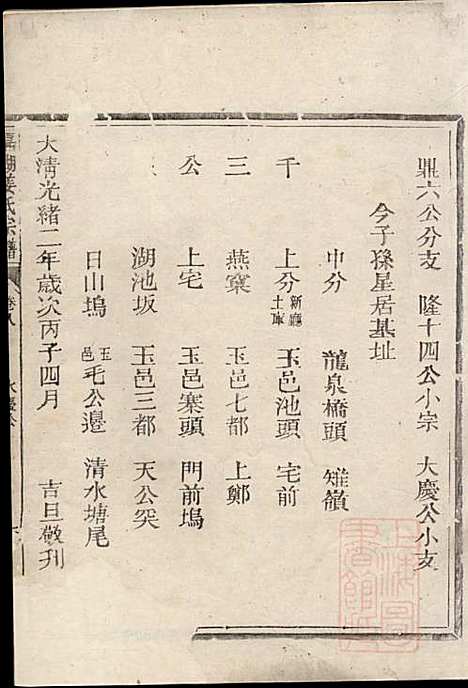 鼎六公分支 隆十四公小宗 大慶公小支
今子孫星居基址
中分 龍泉橋頭 雉嶺
千 上分 新廳土庫 玉邑池頭 宅前
三 燕窠 玉邑七都 上鄭
公 上宅 玉邑寨頭 門前塢
湖池坂 玉邑三都 天公突
日山塢 玉邑毛公邊 清水塘尾
大清光緒二年歲次丙子四月 吉旦敬刊
姜氏宗譜 卷八
上海圖書館藏